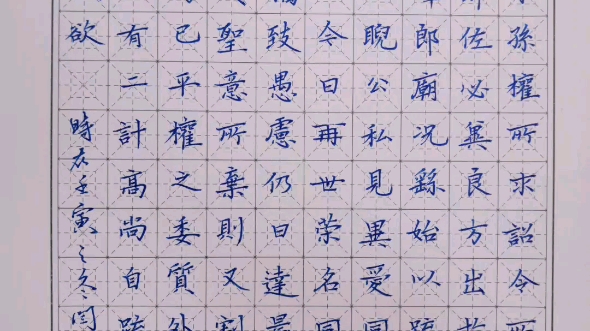 孫權所求詔令所
佐必冀良方出於
郎廟况繇始以疏
睨公私見異愛同
今日再世榮名同
致愚慮仍日達晨
聖意所棄則又割
已平權之委質外
有二計高尚自疏
欲
時在壬寅之冬閆